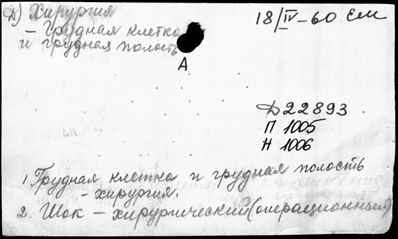 Д) Хирургия
18/IV-60 Ели
- Грудная клетка
и грудная полость
А
Д22893
П 1005
Н 1006
1. Грудная клетка и грудная полость
- хирургия.
2. Шок - хирургический (операционный)